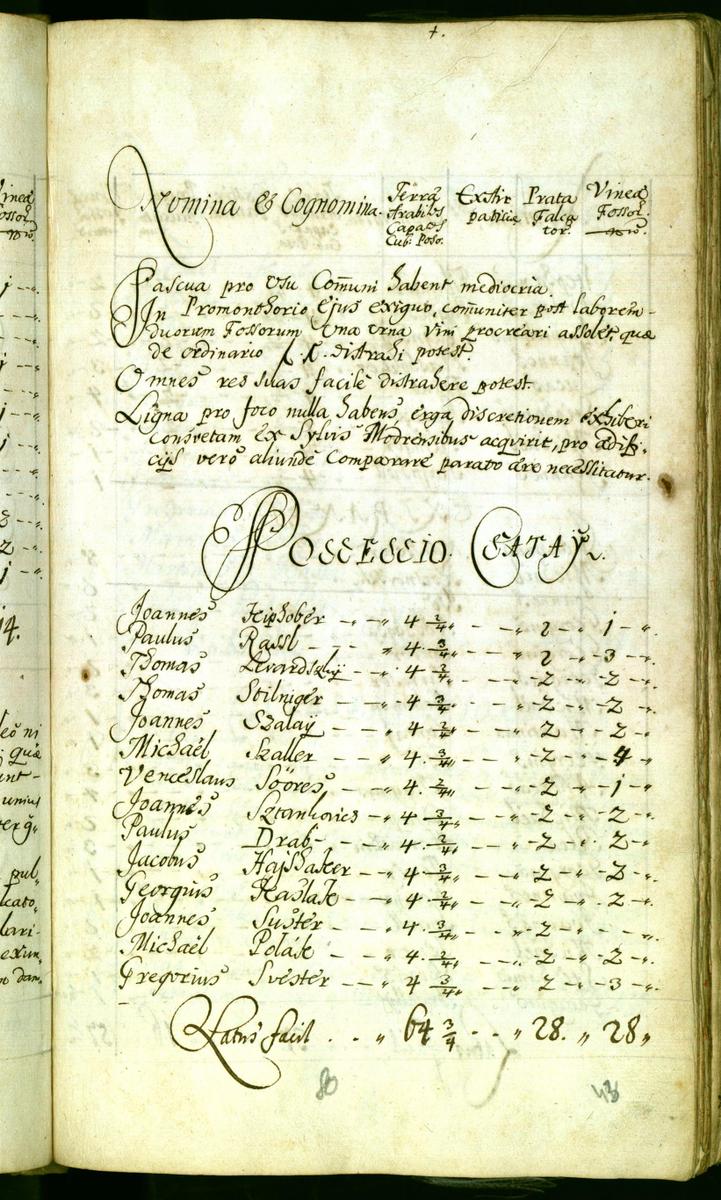 Nomina & Cognomina.
Terra Arabilis Capacis Cub: Poso.
Extirpaticiæ
Prata Falcator.
Vineæ Fossor.
Pascua pro Usu Com̄uni habent mediocria
In Promonthorio Ejus exiguo, com̄uniter post laborem
duorum Fossorum Una Urna Vini procreari assolet, quæ
de ordinario distrahi potest.
Omnes res suas facile distrahere potest.
Ligna pro foco nulla habens, erga discretionem exhiberi
consvetam ex Sylvis Modrensibus acquirit, pro ædifi-
cijs verò aliunde Comparare parato ære necessitatur.
POSSESSIO. CSATAÝ.
Joannes Hiphober - - „ 4 3/4 „ - - „ 2 - „ 1 - „.
Paulus Rassl - - - „ 4 3/4 „ - - „ 2 - „ 3 - „.
Thomas Levardszkÿ - - „ 4 3/4 „ - - „ 2 - „ 2 - „.
Thomas Stilniger - - „ 4 3/4 „ - - „ 2 - „ 2 - „.
Joannes Szalaÿ - - „ 4 3/4 „ - - „ 2 - „ 2 - „.
Michaël Szaller - - „ 4 3/4 „ - - „ 2 - „ 4 „
Venceslaus Sööres - - „ 4 3/4 „ - - „ 2 - „ 1 - „
Joannes Sztankovics - „ 4 3/4 „ - - „ 2 - „ 2 - „.
Paulus Drab - - - „ 4 3/4 „ - - „ 2 - „ 2 - „.
Jacobus Hajszaker - - „ 4 3/4 „ - - „ 2 - „ 2 - „.
Georgius Haslak - - „ 4 3/4 „ - - „ 2 - „ 2 - „.
Joannes Suster - - „ 4 3/4 „ - - „ 2 - „ - - „.
Michaël Polák - - „ 4 3/4 „ - - „ 2 - „ 2 - „.
Gregorius Svester - - „ 4 3/4 „ - - „ 2 - „ 3 - „.
Latus facil . . - „ 64 3/4 - - „ 28. „ 28 „
80
43